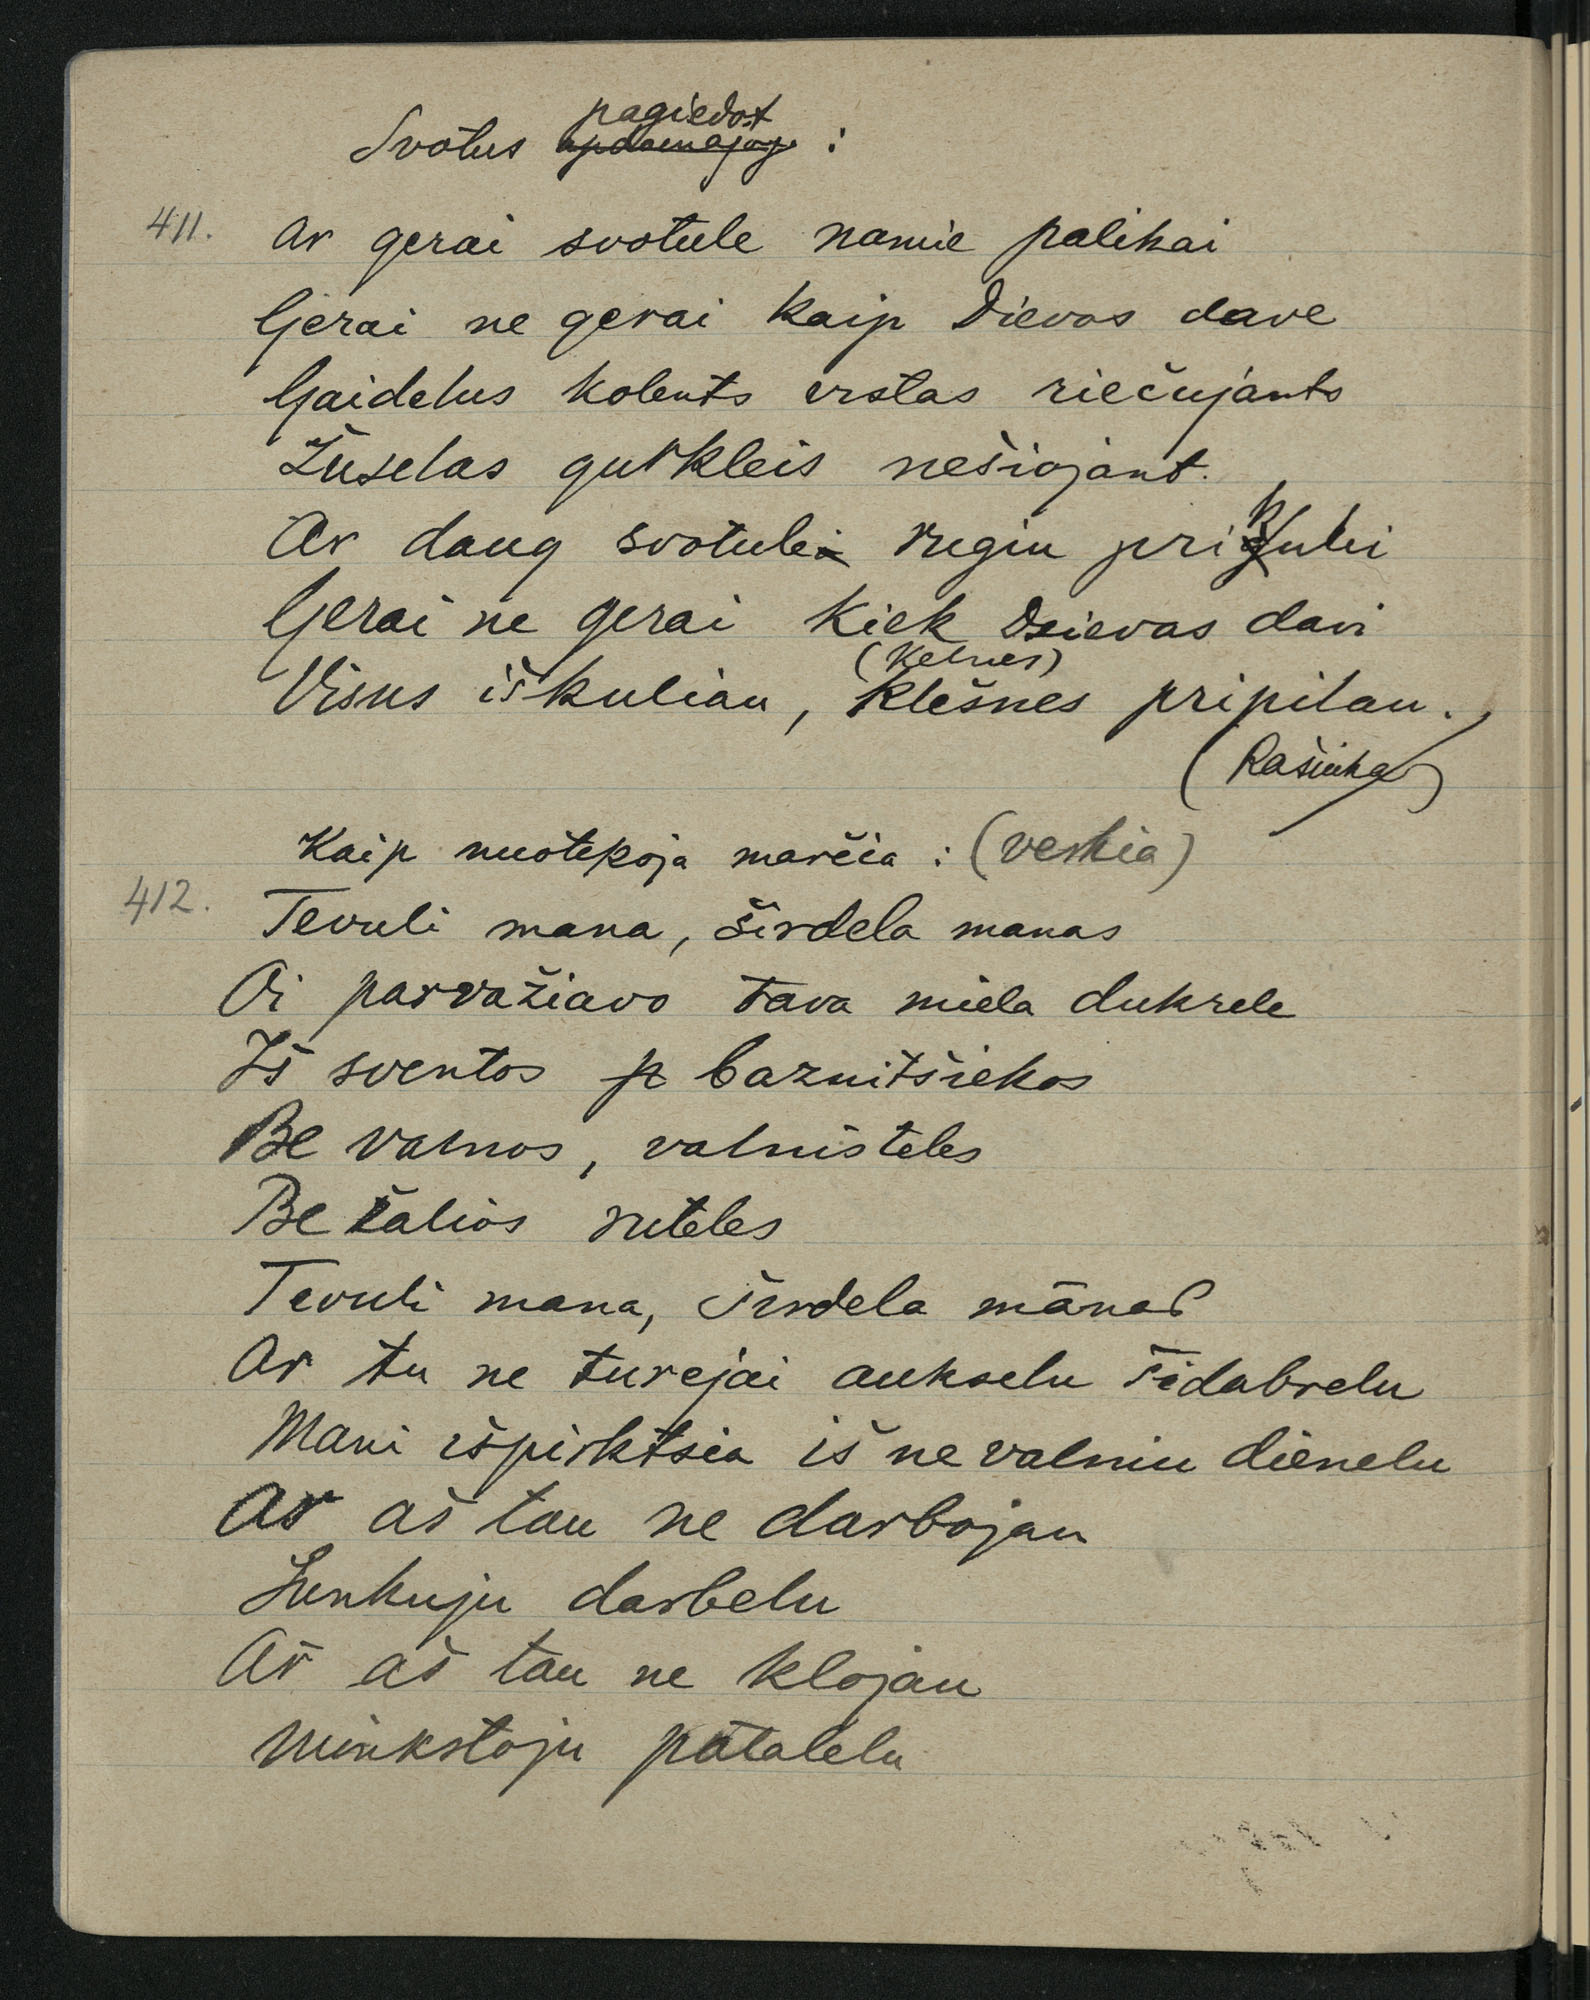 Svotus pagiedot :
411. Ar gerai svotule namie palikai
Gerai ne gerai kaip Dievas dave
Gaidelus kolents vistas riečujants
Žuselas gurkleis nešiojant.
Ar daug svotule rugiu prikulei
Gerai ne gerai kiek Dzievas davi
(Kelnes)
Visus iškuliau, klešnes pripilau.
(Rašiuka)
Kaip nuotekoja marčia : (verkia)
412. Tevuli mana, širdela manas
Oi parvažiavo tava miela dukrele
Iš sventos baznitšiekos
Be valnos, valnisteles
Be žalios ruteles
Tevuli mana, širdela mānas
Ar tu ne turejai aukselu šidabrelu
Mani išpirktsia iš ne valniu dienelu
Ar aš tau ne darbojau
Sunkuju darbelu
Ar aš tau ne klojau
Minkstoju patalelu